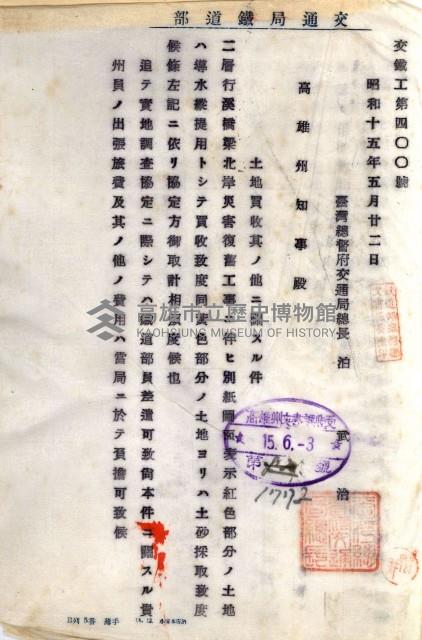 交通局鐵道部
交鐵工第四〇〇號
昭和十五年五月廿二日
臺灣總督府交通局總長 泊 武治
高雄州知事殿
土地買收其ノ他ニ關スル件
二層行溪橋梁北岸災害復舊工事ニ伴ヒ別紙圖面表示紅色部分ノ土地
ハ導水堤用トシテ買收致度同黃色部分ノ土地ヨリハ土砂採取致度
候條左記ニ依リ協定方御取計相煩度候也
追テ實地調查協定ニ際シテハ鐵道部員差遣可致尙本件ニ關スル貴
州員ノ出張旅費及其ノ他ノ費用ハ當局ニ於テ負擔可致候
高雄市立歷史博物館
KAOHSIUNG MUSEUM OF HISTORY
15.6.-3
第 號
1772